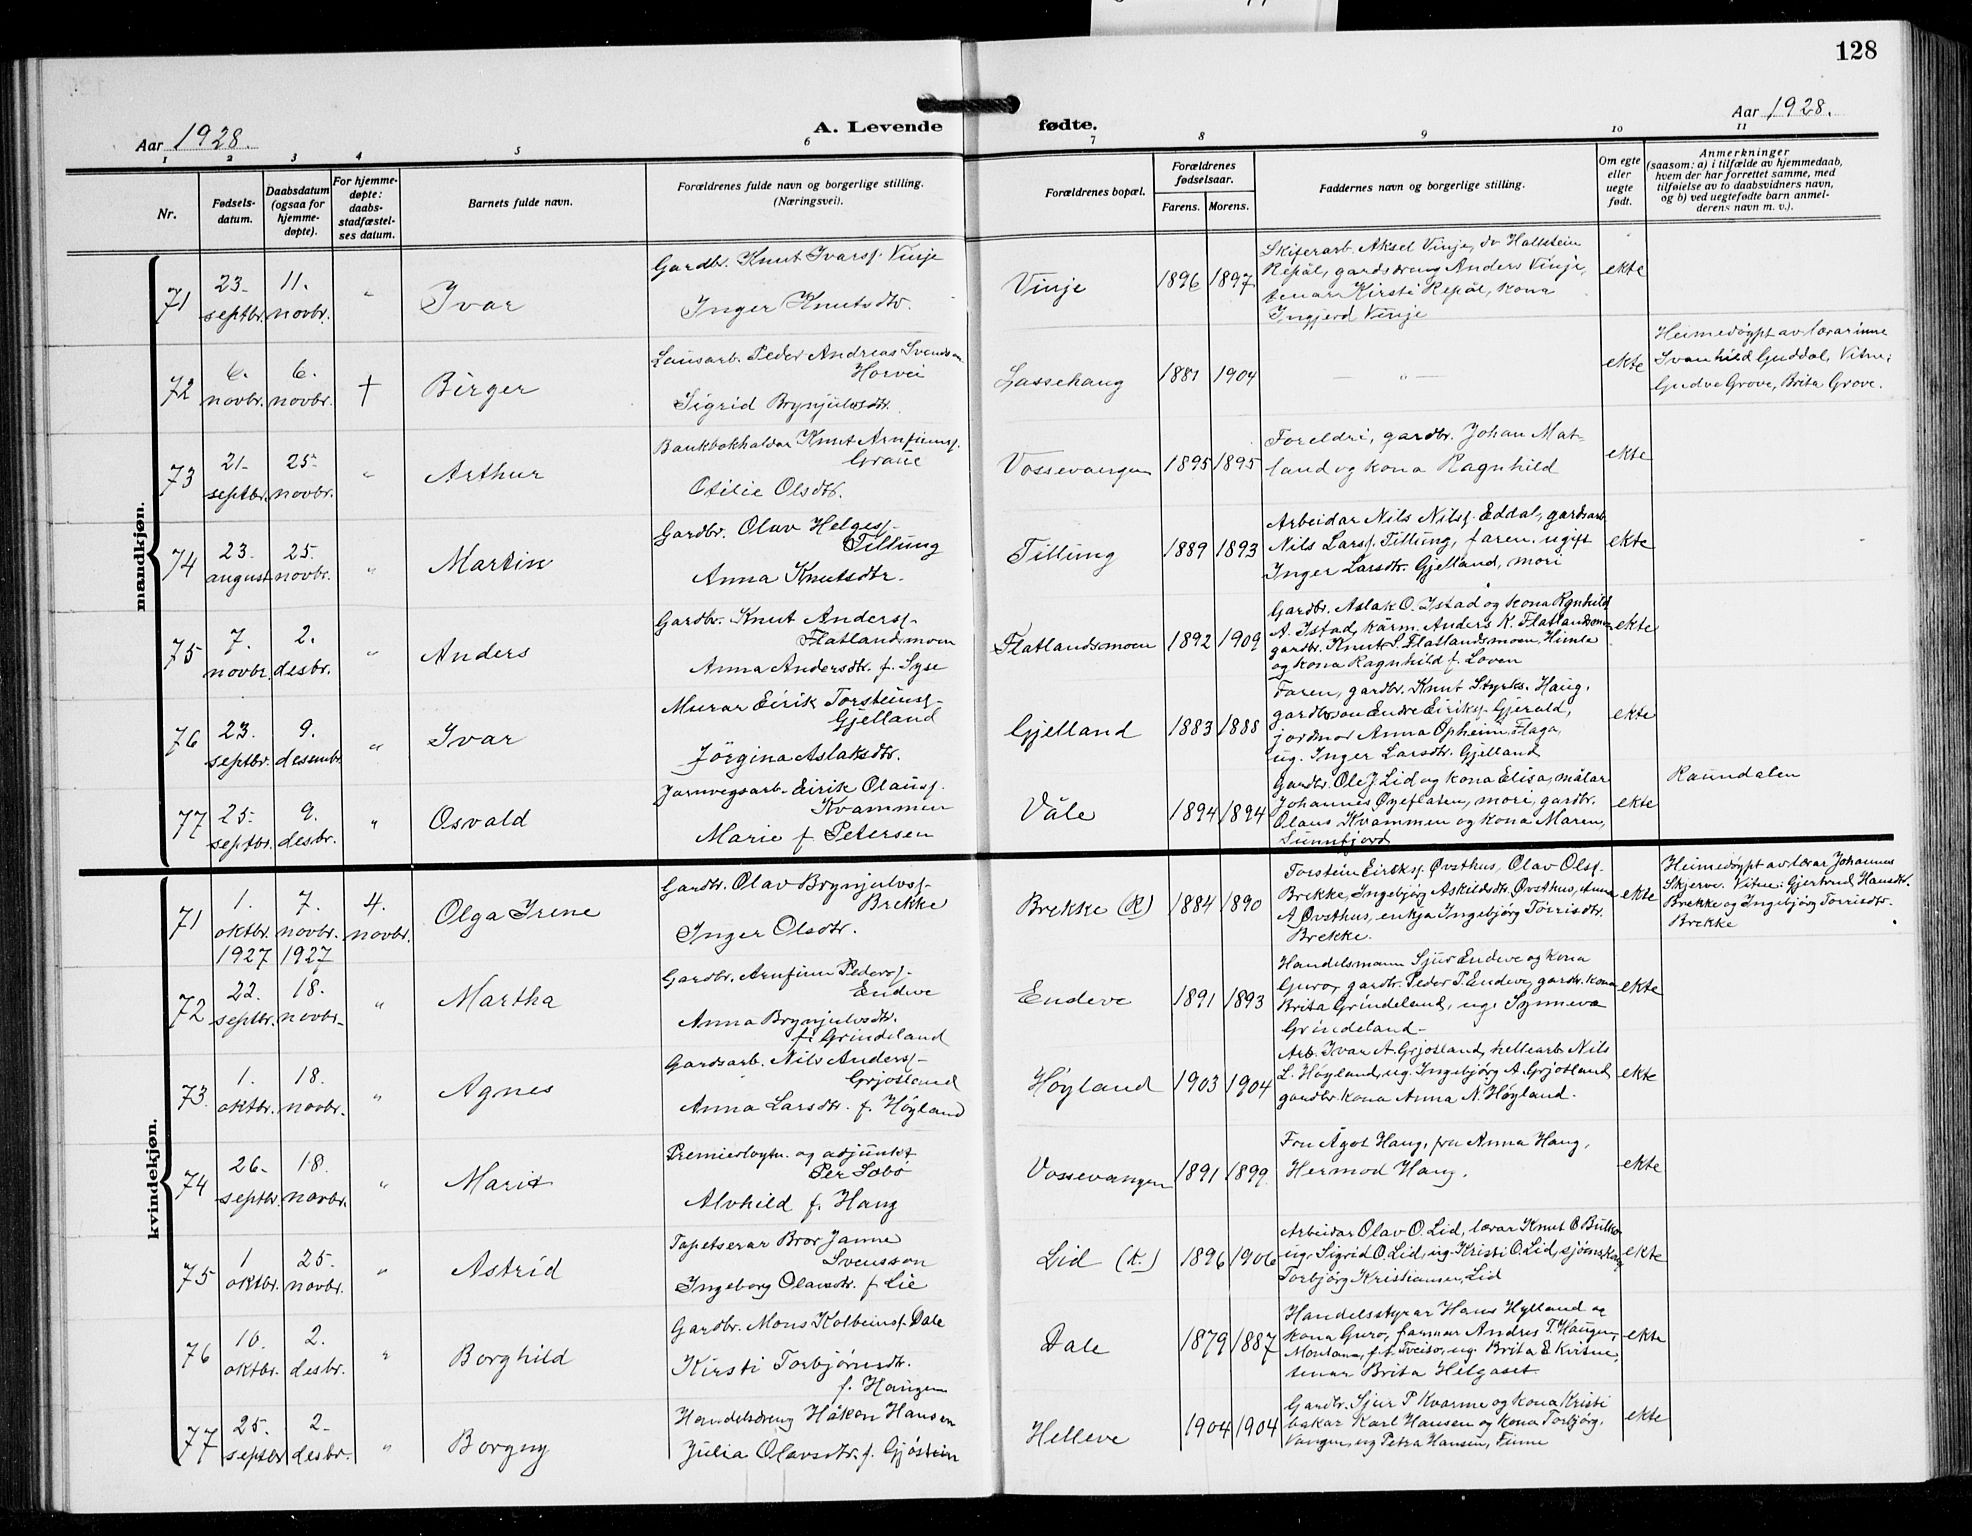 128
Aar 1928.
A. Levende
fødte.
Aar 1928.
1 2 3 4 5 6 7 8 9 10 11
Nr.
Fødsels-
datum.
Daabsdatum
(ogsaa for
hjemme-
døpte).
For hjemme-
døpte:
daabs-
stadfæstel-
ses datum.
Barnets fulde navn.
Forældrenes fulde navn og borgerlige stilling.
(Næringsvei).
Forældrenes bopæl.
Forældrenes
fødselsaar.
Farens. Morens.
Faddernes navn og borgerlige stilling.
Om egte
eller
uegte
født.
Anmerkninger
(saasom: a) i tilfælde av hjemmedaab,
hvem der har forrettet samme, med
tilføielse av to daabsvidners navn,
og b) ved uegtefødte barn anmel-
derens navn m. v.).
mandkjøn.
71
23.
septbr.
11.
novbr.
"
Ivar
Gardbr. Knut Ivarss. Vinje
Inger Knutsdtr.
Vinje
1896 1897
Skiferarb. Aksel Vinje, do Hallstein
Repål, gardsdreng Anders Vinje,
tenar Kirsti Repål, kona
Ingjerd Vinje
ekte
72
6.
novbr.
6.
novbr.
†
Birger
Lausarb. Peder Andreas Svendsen
Horvei
Sigrid Brynjulvsdtr.
Lassehaug
1881 1904
— " —
ekte
Heimedøypt av lærarinne
Svanhild Guddal, Vitne:
Gudve Grove, Brita Grove.
73
21.
septbr.
25.
novbr.
"
Arthur
Bankbokhaldar Knut Arnfinnss.
Graue
Otilie Olsdtr.
Vossevangen
1895 1895
Foreldri, gardbr. Johan Mat-
land og kona Ragnhild
ekte
74
23.
august
25.
novbr.
"
Martin
Gardbr. Olav Helgess.
Tillung
Anna Knutsdtr.
Tillung
1889 1893
Arbeidar Nils Nilss. Eddal, gardsarb.
Nils Larss. Tillung, faren, ugift
Inger Larsdtr. Gjelland, mori
ekte
75
7.
novbr.
2.
desbr.
"
Anders
Gardbr. Knut Anderss.
Flatlandsmoen
Anna Andersdtr. f. Syse
Flatlandsmoen
1892 1909
Gardbr. Aslak O. Istad og kona Ragnhild
A. Istad, kårm. Anders K. Flatlandsmoen
gardbr. Knut S. Flatlandsmoen, Himle
og kona Ragnhild f. Loven
ekte
76
23.
septbr.
9.
desembr.
"
Ivar
Murar Eirik Torsteinss.
Gjelland
Jörgina Aslaksdtr.
Gjelland
1883 1888
Faren, gardbr. Knut Styrks. Haug,
gardbrson Endre Eirikss. Gjerald,
jordmor Anna Opheim, Flaga,
ug. Inger Larsdtr. Gjelland
ekte
77
25.
septbr.
9.
desbr.
"
Osvald
Jarnvegsarb. Eirik Olauss.
Kvammen
Marie f. Petersen
Våle
1894 1894
Gardbr. Ole J. Lid og kona Elisa, målar
Johannes Øyeflaten, mori, gardbr.
Olaus Kvammen og kona Maren,
Sunnfjord
ekte
Raundalen
kvindekjøn.
71
1.
oktbr.
1927
7.
novbr.
1927
4.
novbr.
Olga Irene
Gardbr. Olav Brynjulvss.
Brekke
Inger Olsdtr.
Brekke (K)
1884 1890
Torstein Eirikss. Øvsthus, Olav Olss.
Brekke, Ingebjørg Askildsdtr. Øvsthus, Anna
A Øvsthus, enkja Ingebjørg Torrisdtr.
Brekke.
ekte
Heimedøypt av lærar Johannes
Skjerve. Vitne: Gjertrud Hansdtr.
Brekke og Ingebjørg Torrisdtr.
Brekke
72
22.
septbr.
18.
novbr.
"
Martha
Gardbr. Arnfinn Pederss.
Endeve
Anna Brynjulvsdtr.
f. Grindeland
Endeve
1891 1893
Handelsmann Sjur Endeve og kona
Guro, gardbr. Peder P. Endeve, gardbr. kona
Brita Grindeland, ug. Synneva
Grindeland.
ekte
73.
1.
oktbr.
18.
novbr.
"
Agnes
Gardsarb. Nils Anderss.
Grjotland
Anna Larsdtr. f. Høyland
Høyland
1903 1904
Arb. Ivar A. Grjotland, hellearb. Nils
L. Høyland, ug. Ingebjörg A. Grjotland
gardbr. kona Anna N. Høyland.
ekte
74
26.
septbr.
18.
novbr.
"
Marit
Premierløytn. og adjunkt
Per Sæbö
Alvhild f. Haug
Vossevangen
1891 1899
Fru Ågot Haug, fru Anna Haug,
Hermod Haug.
ekte
75
1
oktbr.
25.
novbr.
"
Astrid
Tapetserar Bror Janne
Svensson
Ingeborg Olavsdtr. f. Lie
Lid (k.)
1896 1906
Arbeidar Olav O. Lid, lærar Knut B. Bulko
ug. Sigrid O. Lid, ug. Kristi O. Lid, sjømskona
Torbjörg Kristiansen, Lid
ekte
76
10.
oktbr.
2.
desbr.
"
Borghild
Gardbr. Mons Kolbeinss. Dale
Kirsti Torbjörnsdtr.
f. Haugen
Dale
1879 1887
Handelsstyrar Hans Hylland og
kona Guro, farmar Andres T. Haugen,
Montana, p.t. Tveito, ug. Brita E Kvitne,
tenar Brita Helgaset.
ekte
77
25.
septbr
2.
desbr.
"
Borgny
Handelsdreng Håkon Hansen
Julia Olavsdtr. f. Gjöstein
Helleve
1904 1904
Gardbr. Sjur P Kvarme og kona Kristi
bakar Karl Hansen og kona Torbjörg,
Vangen, ug Petra Hansen, Finne
ekte